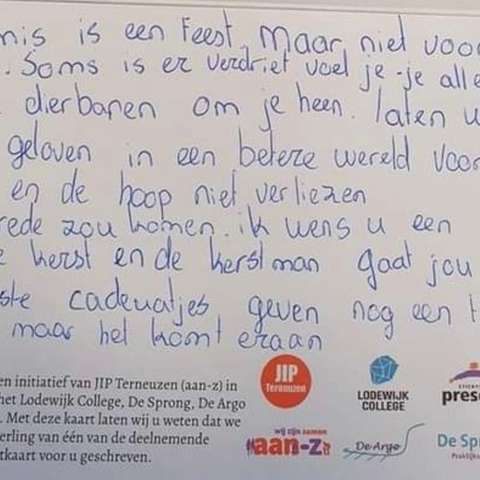 mis is een Feest. Maar niet voor
. Soms is er verdriet voel je-je alle
dierbaren om je heen. laten u
geloven in een betere wereld voor
en de hoop niet verliezen
rede zou komen. ik wens u een
e kerst en de kerstman gaat jou
ste cadeuatjes geven nog een t
maar het komt eraan
en initiatief van JIP Terneuzen (aan-z) in
het Lodewijk College, De Sprong, De Argo
. Met deze kaart laten wij u weten dat we
erling van één van de deelnemende
tkaart voor u geschreven.
JIP
Terneuzen
LODEWIJK
COLLEGE
STICHT
prese
wij zijn samen
aan-z
De Argo
De Sp
Praktijks